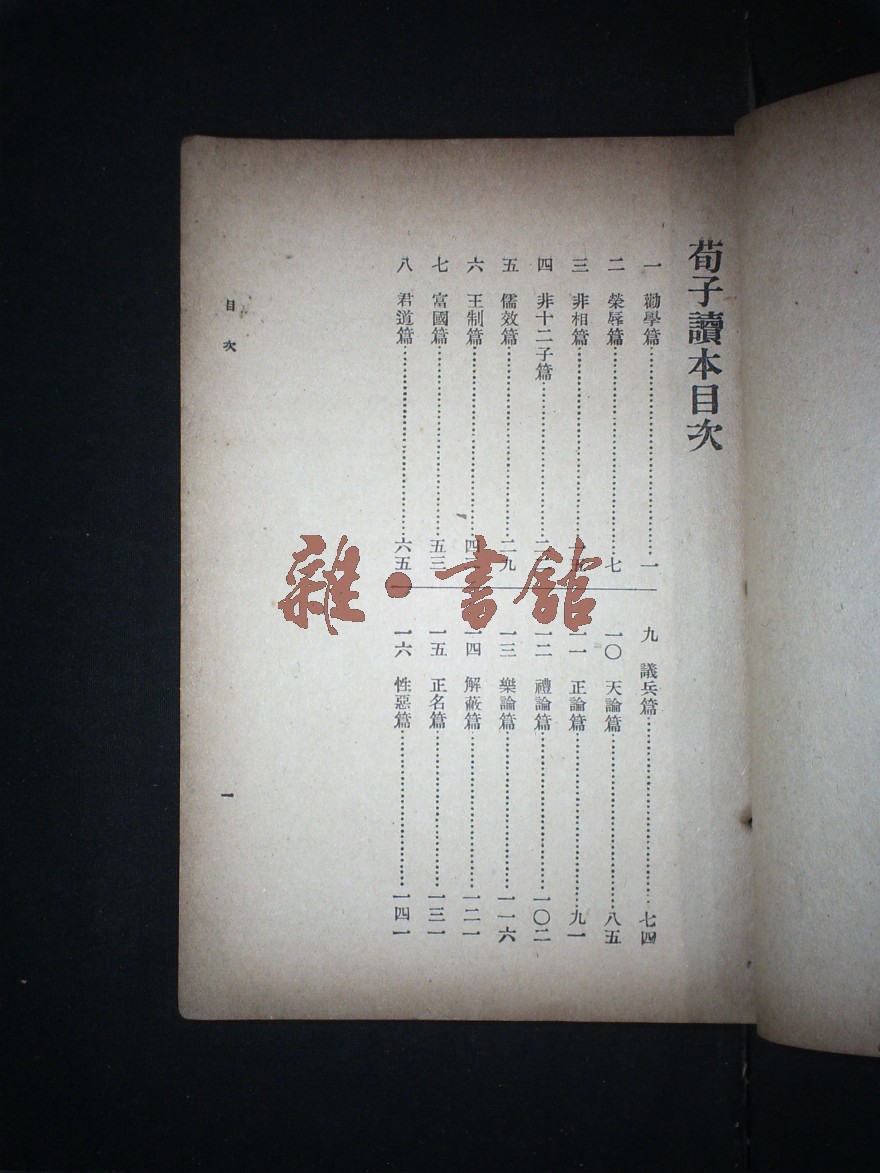 荀子讀本目次
一 勸學篇……一
二 榮辱篇……七
三 非相篇……
四 非十二子篇……二
五 儒效篇……二九
六 王制篇……四
七 富國篇……五三
八 君道篇……六五
九 議兵篇……七四
一〇 天論篇……八五
一一 正論篇……九一
一二 禮論篇……一〇二
一三 樂論篇……一一六
一四 解蔽篇……一二一
一五 正名篇……一三一
一六 性惡篇……一四一
目次
一
雜·書館